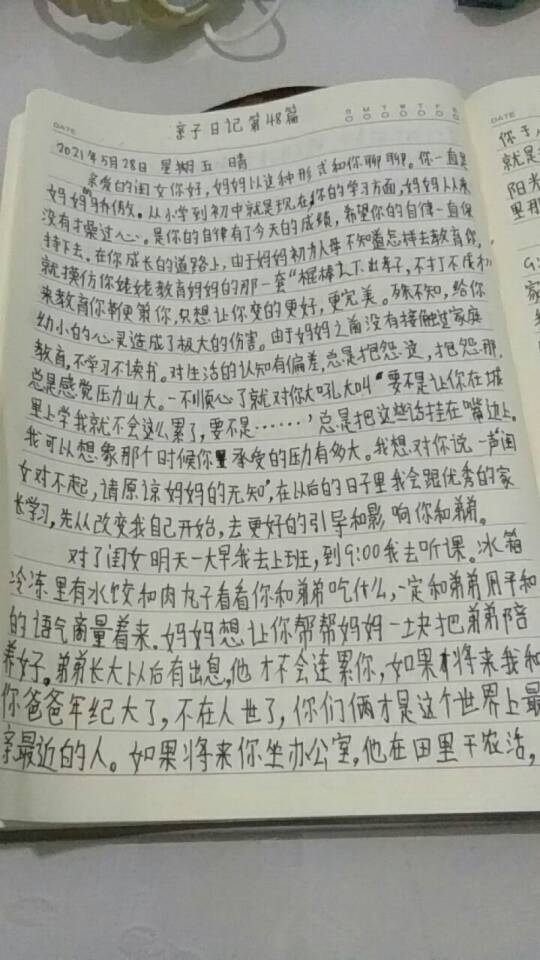 DATE
亲子日记第48篇
S M T W T F S
DATE
2021年5月28日 星期五 晴
亲爱的闺女你好，妈妈以这种形式和你聊聊。你一直是
妈妈骄傲。从小学到初中就是现在，你的学习方面，妈妈从来
没有才操过心。是你的自律有了今天的成绩，希望你的自律一直保
持下去。在你成长的道路上，由于妈妈初为人母不知道怎样去教育你，
就摸仿你姥姥教育妈妈的那一套“棍棒之下出孝子，不打不成才”
来教育你鞭策你，只想让你变的更好，更完美。殊不知，给你
幼小的心灵造成了极大的伤害。由于妈妈之前没有接触过家庭
教育，不学习不读书。对生活的认知有偏差，总是抱怨这，抱怨那，
总是感觉压力山大。一不顺心了就对你大吼大叫“要不是让你在城
里上学我就不会这么累了，要不是……，总是把这些话挂在嘴边上。
我可以想象那个时候你承受的压力有多大。我想对你说一声闺
女对不起，请原谅妈妈的无知，在以后的日子里我会跟优秀的家
长学习，先从改变我自己开始，去更好的引导和影响你和弟弟。
对了闺女明天一大早我去上班，到9:00我去听课。冰箱
冷冻里有水饺和肉丸子看看你和弟弟吃什么，一定和弟弟用平和
的语气商量着来。妈妈想让你帮帮妈妈一块把弟弟陪
养好。弟弟长大以后有出息，他才不会连累你，如果将来我和
你爸爸年纪大了，不在人世了，你们俩才是这个世界上最
亲最近的人。如果将来你坐办公室，他在田里干农活，
你于
就是
阳光
里那